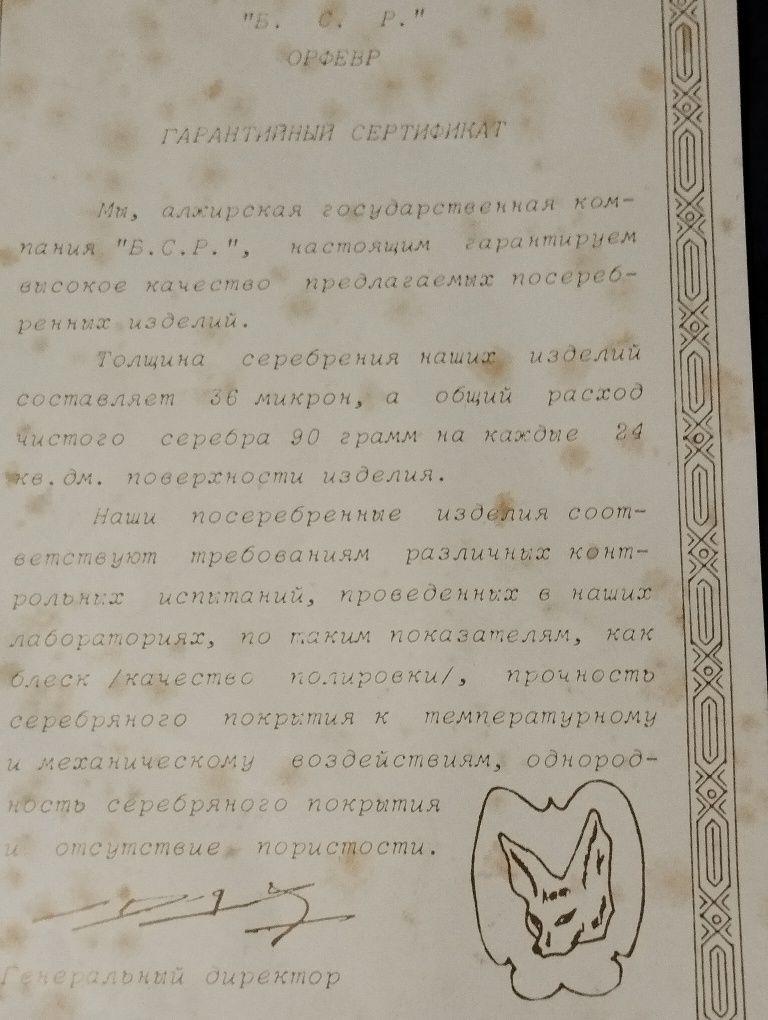 "Б. С. Р."
ОРФЕВР
ГАРАНТИЙНЫЙ СЕРТИФИКАТ
Мы, алжирская государственная ком-
пания "Б.С.Р.", настоящим гарантируем
высокое качество предлагаемых посереб-
ренных изделий.
Толщина серебрения наших изделий
составляет 36 микрон, а общий расход
чистого серебра 90 грамм на каждые 24
кв.дм. поверхности изделия.
Наши посеребренные изделия соот-
ветствуют требованиям различных конт-
рольных испытаний, проведенных в наших
лабораториях, по таким показателям, как
блеск /качество полировки/, прочность
серебряного покрытия к температурному
и механическому воздействиям, однород-
ность серебряного покрытия
и отсутствие пористости.
Генеральный директор